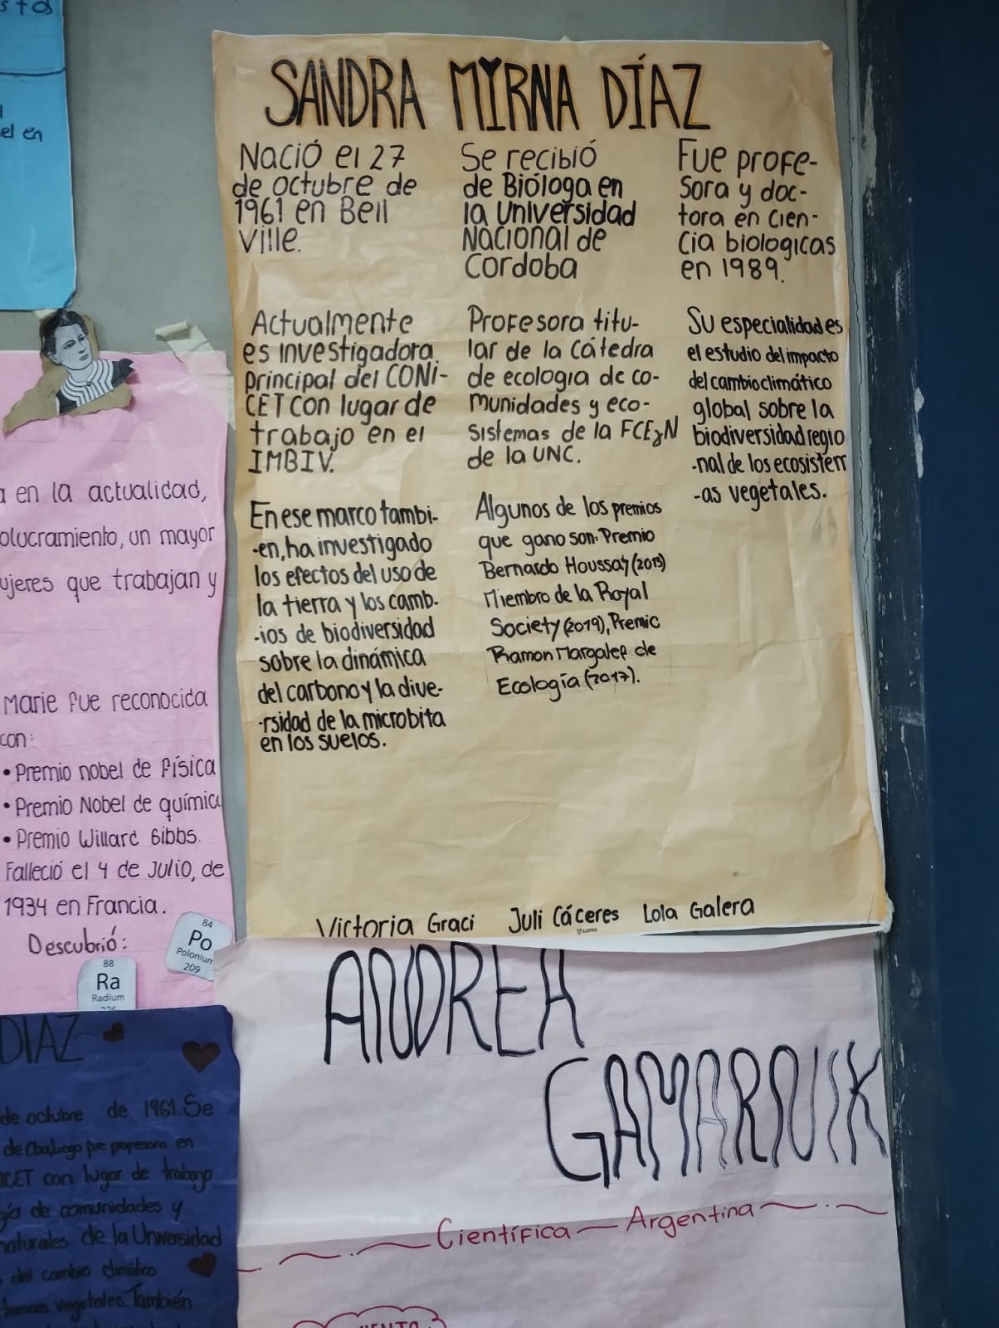 stos
el en
SANDRA MYRNA DÍAZ
Nació el 27
de octubre de
1961 en Bell
Ville.
Se recibió
de Bióloga en
la Universidad
Nacional de
Cordoba
Fue profe-
sora y doc-
tora en cien-
cia biologicas
en 1989.
Actualmente
es investigadora
principal del CONI-
CET con lugar de
trabajo en el
IMBIV.
Profesora titu-
lar de la Cátedra
de ecologia de co-
munidades y eco-
sistemas de la FCEyN
de la UNC.
Su especialidad es
el estudio del impacto
del cambio climático
global sobre la
biodiversidad regio
-nal de los ecosistem
-as vegetales.
En ese marco tambi-
-en, ha investigado
los efectos del uso de
la tierra y los camb-
-ios de biodiversidad
sobre la dinámica
del carbono y la dive-
-rsidad de la microbita
en los suelos.
Algunos de los premios
que gano son: Premio
Bernardo Houssay (2019)
Miembro de la Royal
Society (2019), Premio
Ramon Margalef de
Ecología (2017).
Victoria Graci Juli Cáceres Lola Galera
a en la actualidad,
olucramiento, un mayor
ujeres que trabajan y
Marie fue reconocida
con:
• Premio nobel de física
• Premio Nobel de química
• Premio Willard Gibbs.
Falleció el 4 de Julio, de
1934 en Francia.
Descubrió:
84
Po
Polonium
209
88
Ra
Radium
DIAZ
de octubre de 1961. Se
fue profesora en
ICET con lugar de trabajo
gía de comunidades y
naturales de la Universidad
del cambio climático
temas vegetales. También
ANDREA
GAMARNIK
Científica Argentina